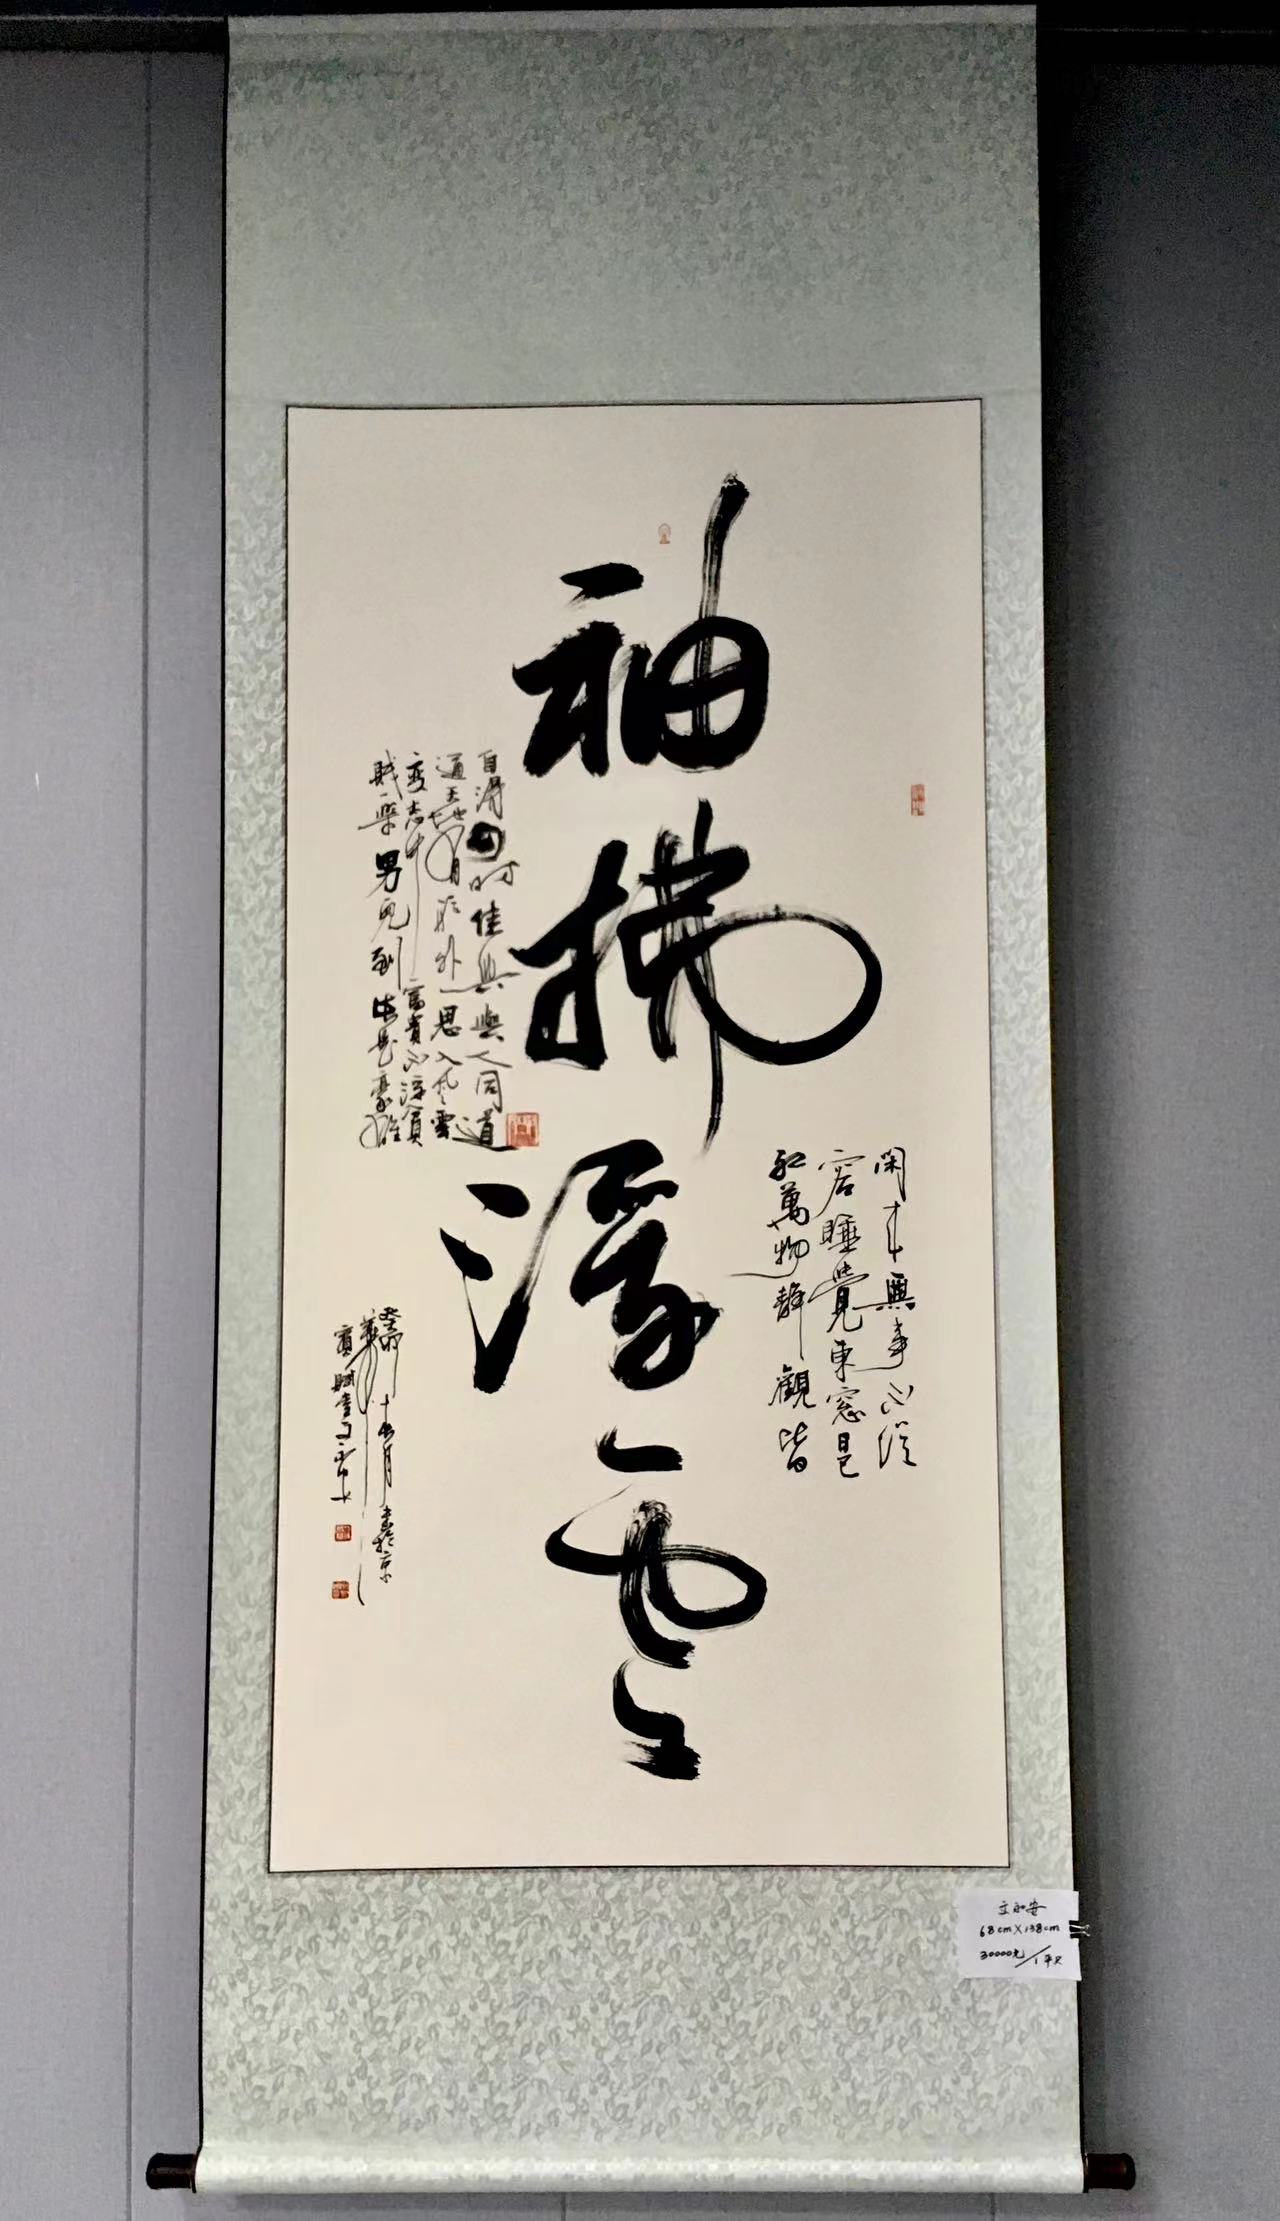 閑來無事不從
容睡覺東窗日已
紅萬物靜觀皆
袖拂浮雲
自得四時佳興與人同道
通天地有形外思入風雲
變態中富貴不淫貧
賤樂男兒到此是豪雄
68cm×138cm
30000元/1平尺